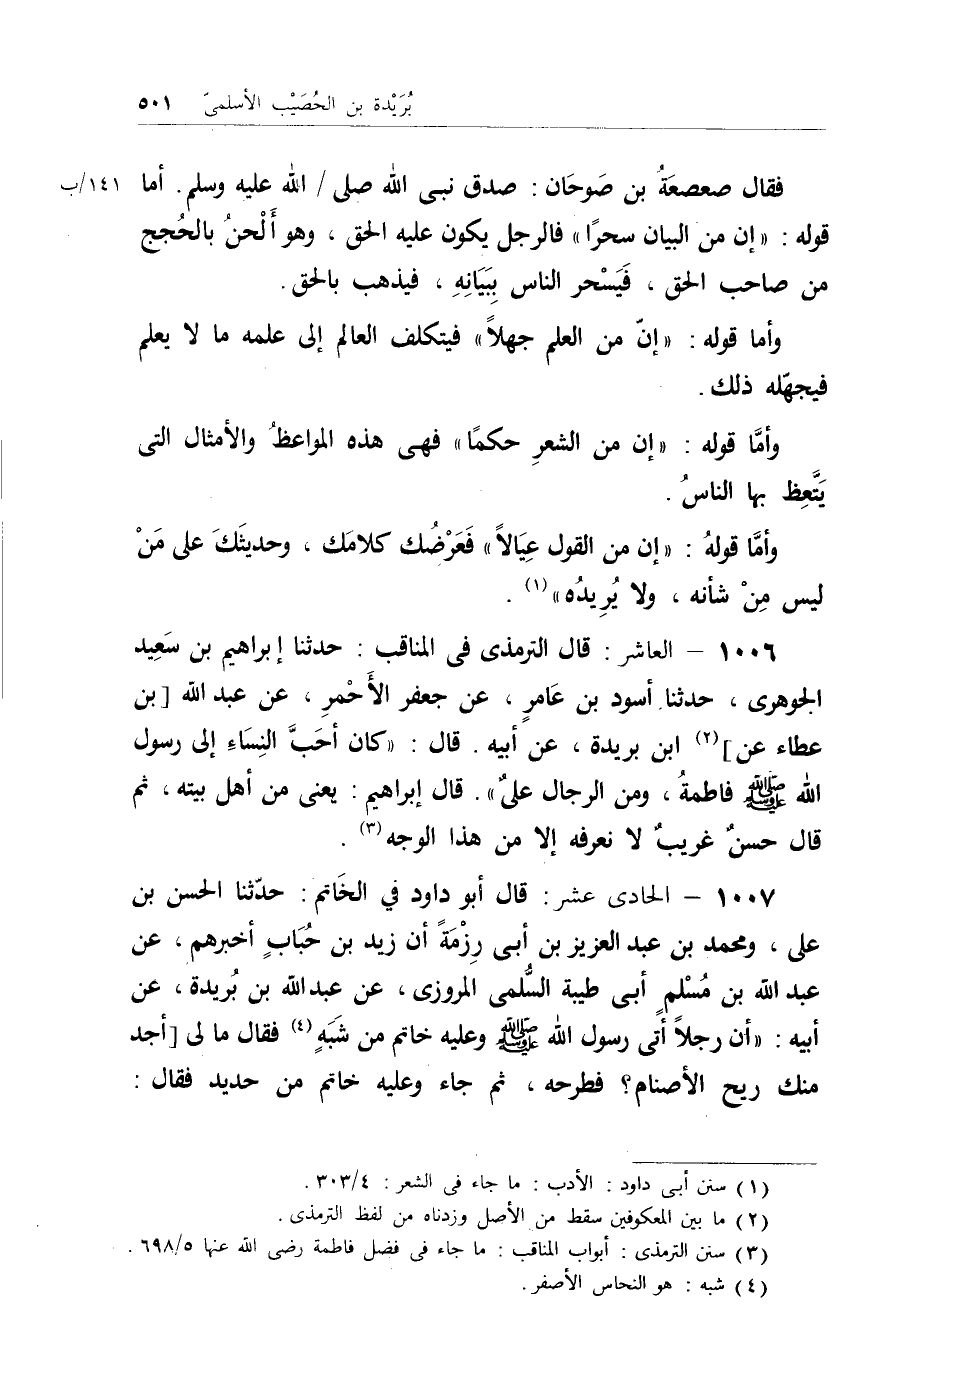 بُرَيْدة بن الحُصَيْب الأسلمىّ ٥٠١
فقال صعصعَةُ بن صَوحَان : صدق نبى الله صلى / الله عليه وسلم. أما ١٤١/ب
قوله : «إن من البيان سحرًا» فالرجل يكون عليه الحق ، وهو أَلْحنُ بالحُجج
من صاحب الحق ، فَيَسْحر الناس بِبَيَانِهِ ، فيذهب بالحق.
وأما قوله : «إنّ من العلم جهلاً» فيتكلف العالم إلى علمه ما لا يعلم
فيجهّله ذلك .
وأمَّا قوله : «إن من الشعرِ حكمًا» فهى هذه المواعظُ والأمثال التى
يَتَّعِظ بها الناسُ .
وأمَّا قولهُ : «إن من القول عِيَالاً» فَعَرْضُك كلامَك ، وحديثَكَ على مَنْ
ليس مِنْ شأنه ، ولا يُرِيدُه» (١) .
١٠٠٦ – العاشر : قال الترمذى فى المناقب : حدثنا إبراهيم بن سَعِيد
الجوهرى ، حدثنا أسود بن عَامرٍ ، عن جعفر الأَحْمرِ ، عن عبد الله [بن
عطاء عن] (٢) ابن بريدة ، عن أبيه . قال : «كان أحَبَّ النِسَاءِ إلى رسول
الله ﷺ فاطمةُ ، ومن الرجال علىٌ» . قال إبراهيم : يعنى من أهل بيته ، ثم
قال حسنٌ غريبٌ لا نعرفه إلا من هذا الوجه (٣) .
١٠٠٧ – الحادى عشر : قال أبو داود في الخَاتم : حدّثنا الحسن بن
على ، ومحمد بن عبد العزيز بن أبى رِزْمَةً أن زيد بن حُبَابٍ أخبرهم ، عن
عبد الله بن مُسْلمٍ أبى طيبة السُّلمى المروزى ، عن عبدالله بن بُريدة ، عن
أبيه : «أن رجلاً أتى رسول الله ﷺ وعليه خاتم من شَبَهٍ (٤) فقال ما لى [أجد
منك ريح الأصنام؟ فطرحه ، ثم جاء وعليه خاتم من حديد فقال :
(١) سنن أبى داود : الأدب : ما جاء فى الشعر : ٣٠٣/٤ .
(٢) ما بين المعكوفين سقط من الأصل وزدناه من لفظ الترمذى .
(٣) سنن الترمذى : أبواب المناقب : ما جاء فى فضل فاطمة رضى الله عنها ٦٩٨/٥ .
(٤) شبه : هو النحاس الأصفر .